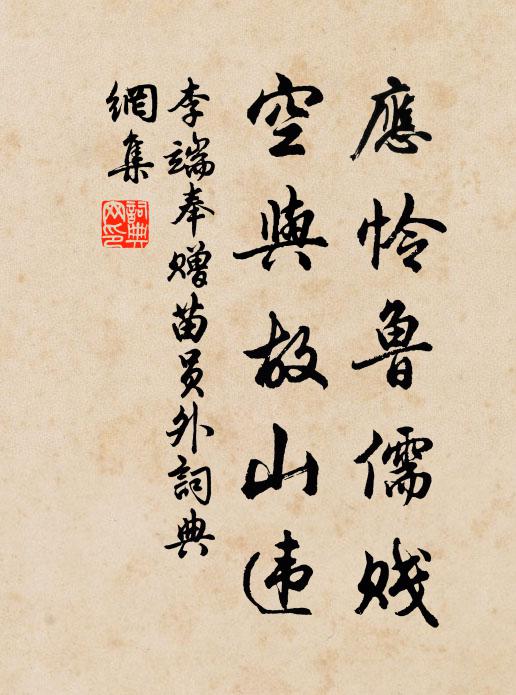 應怜魯儒賤
空與故山违
李端奉贈苗員外詞典
網集
詞典
网印